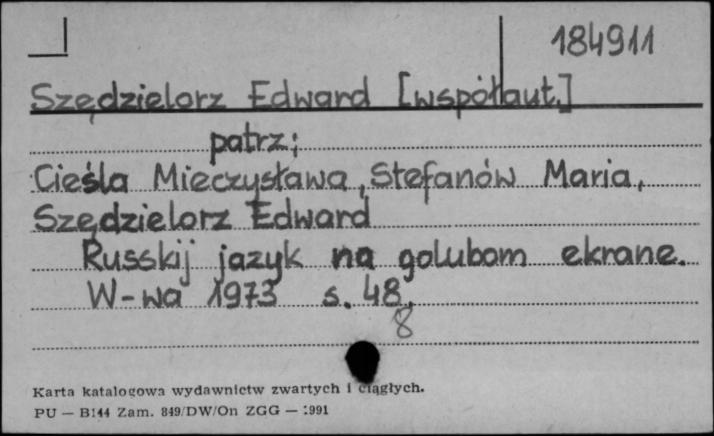 184911
Szędzielorz Edward [współaut.]
patrz;
Cieśla Mieczysława, Stefanów Maria,
Szędzielorz Edward
Russkij jazyk na golubom ekrane.
W-wa 1973 s. 48.
8
Karta katalogowa wydawnictw zwartych i ciągłych.
PU — B144 Zam. 849/DW/On ZGG — 1991